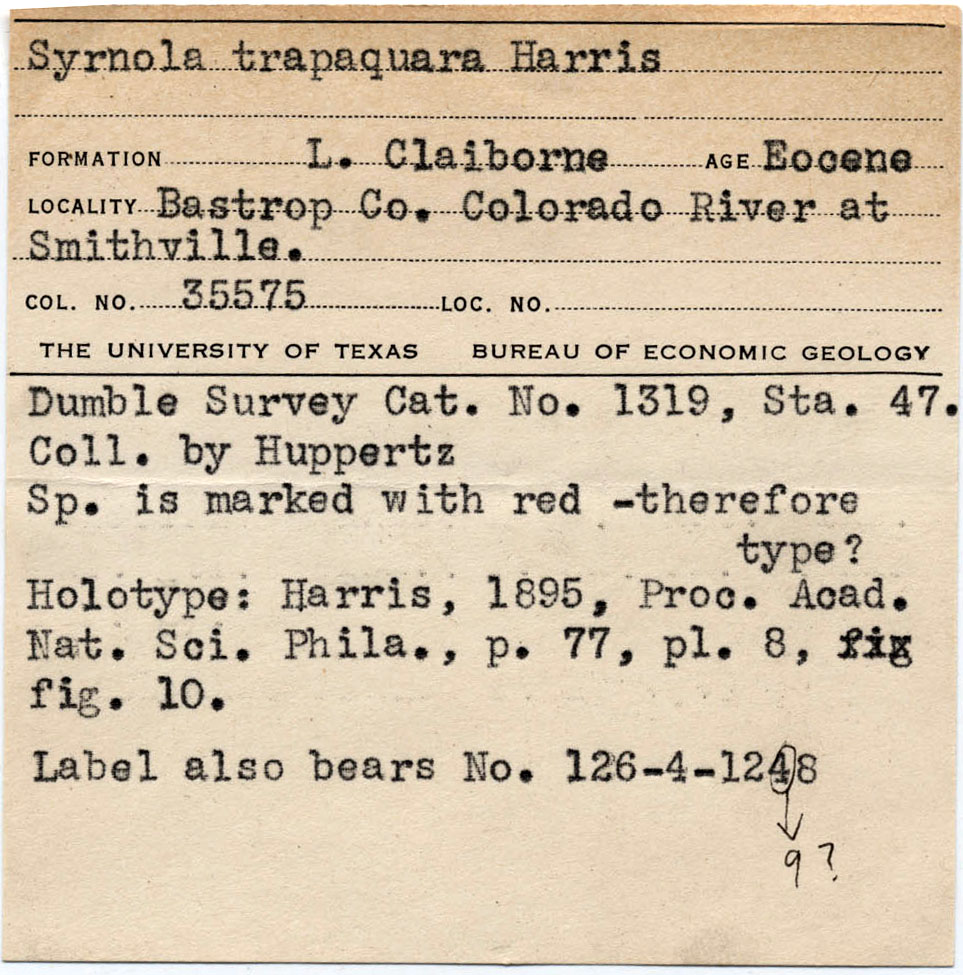 Syrnola trapaquara Harris
FORMATION L. Claiborne AGE Eocene
LOCALITY Bastrop Co. Colorado River at
Smithville.
COL. NO. 35575 LOC. NO.
THE UNIVERSITY OF TEXAS BUREAU OF ECONOMIC GEOLOGY
Dumble Survey Cat. No. 1319, Sta. 47.
Coll. by Huppertz
Sp. is marked with red -therefore
type?
Holotype: Harris, 1895, Proc. Acad.
Nat. Sci. Phila., p. 77, pl. 8, fix
fig. 10.
Label also bears No. 126-4-1248
9?